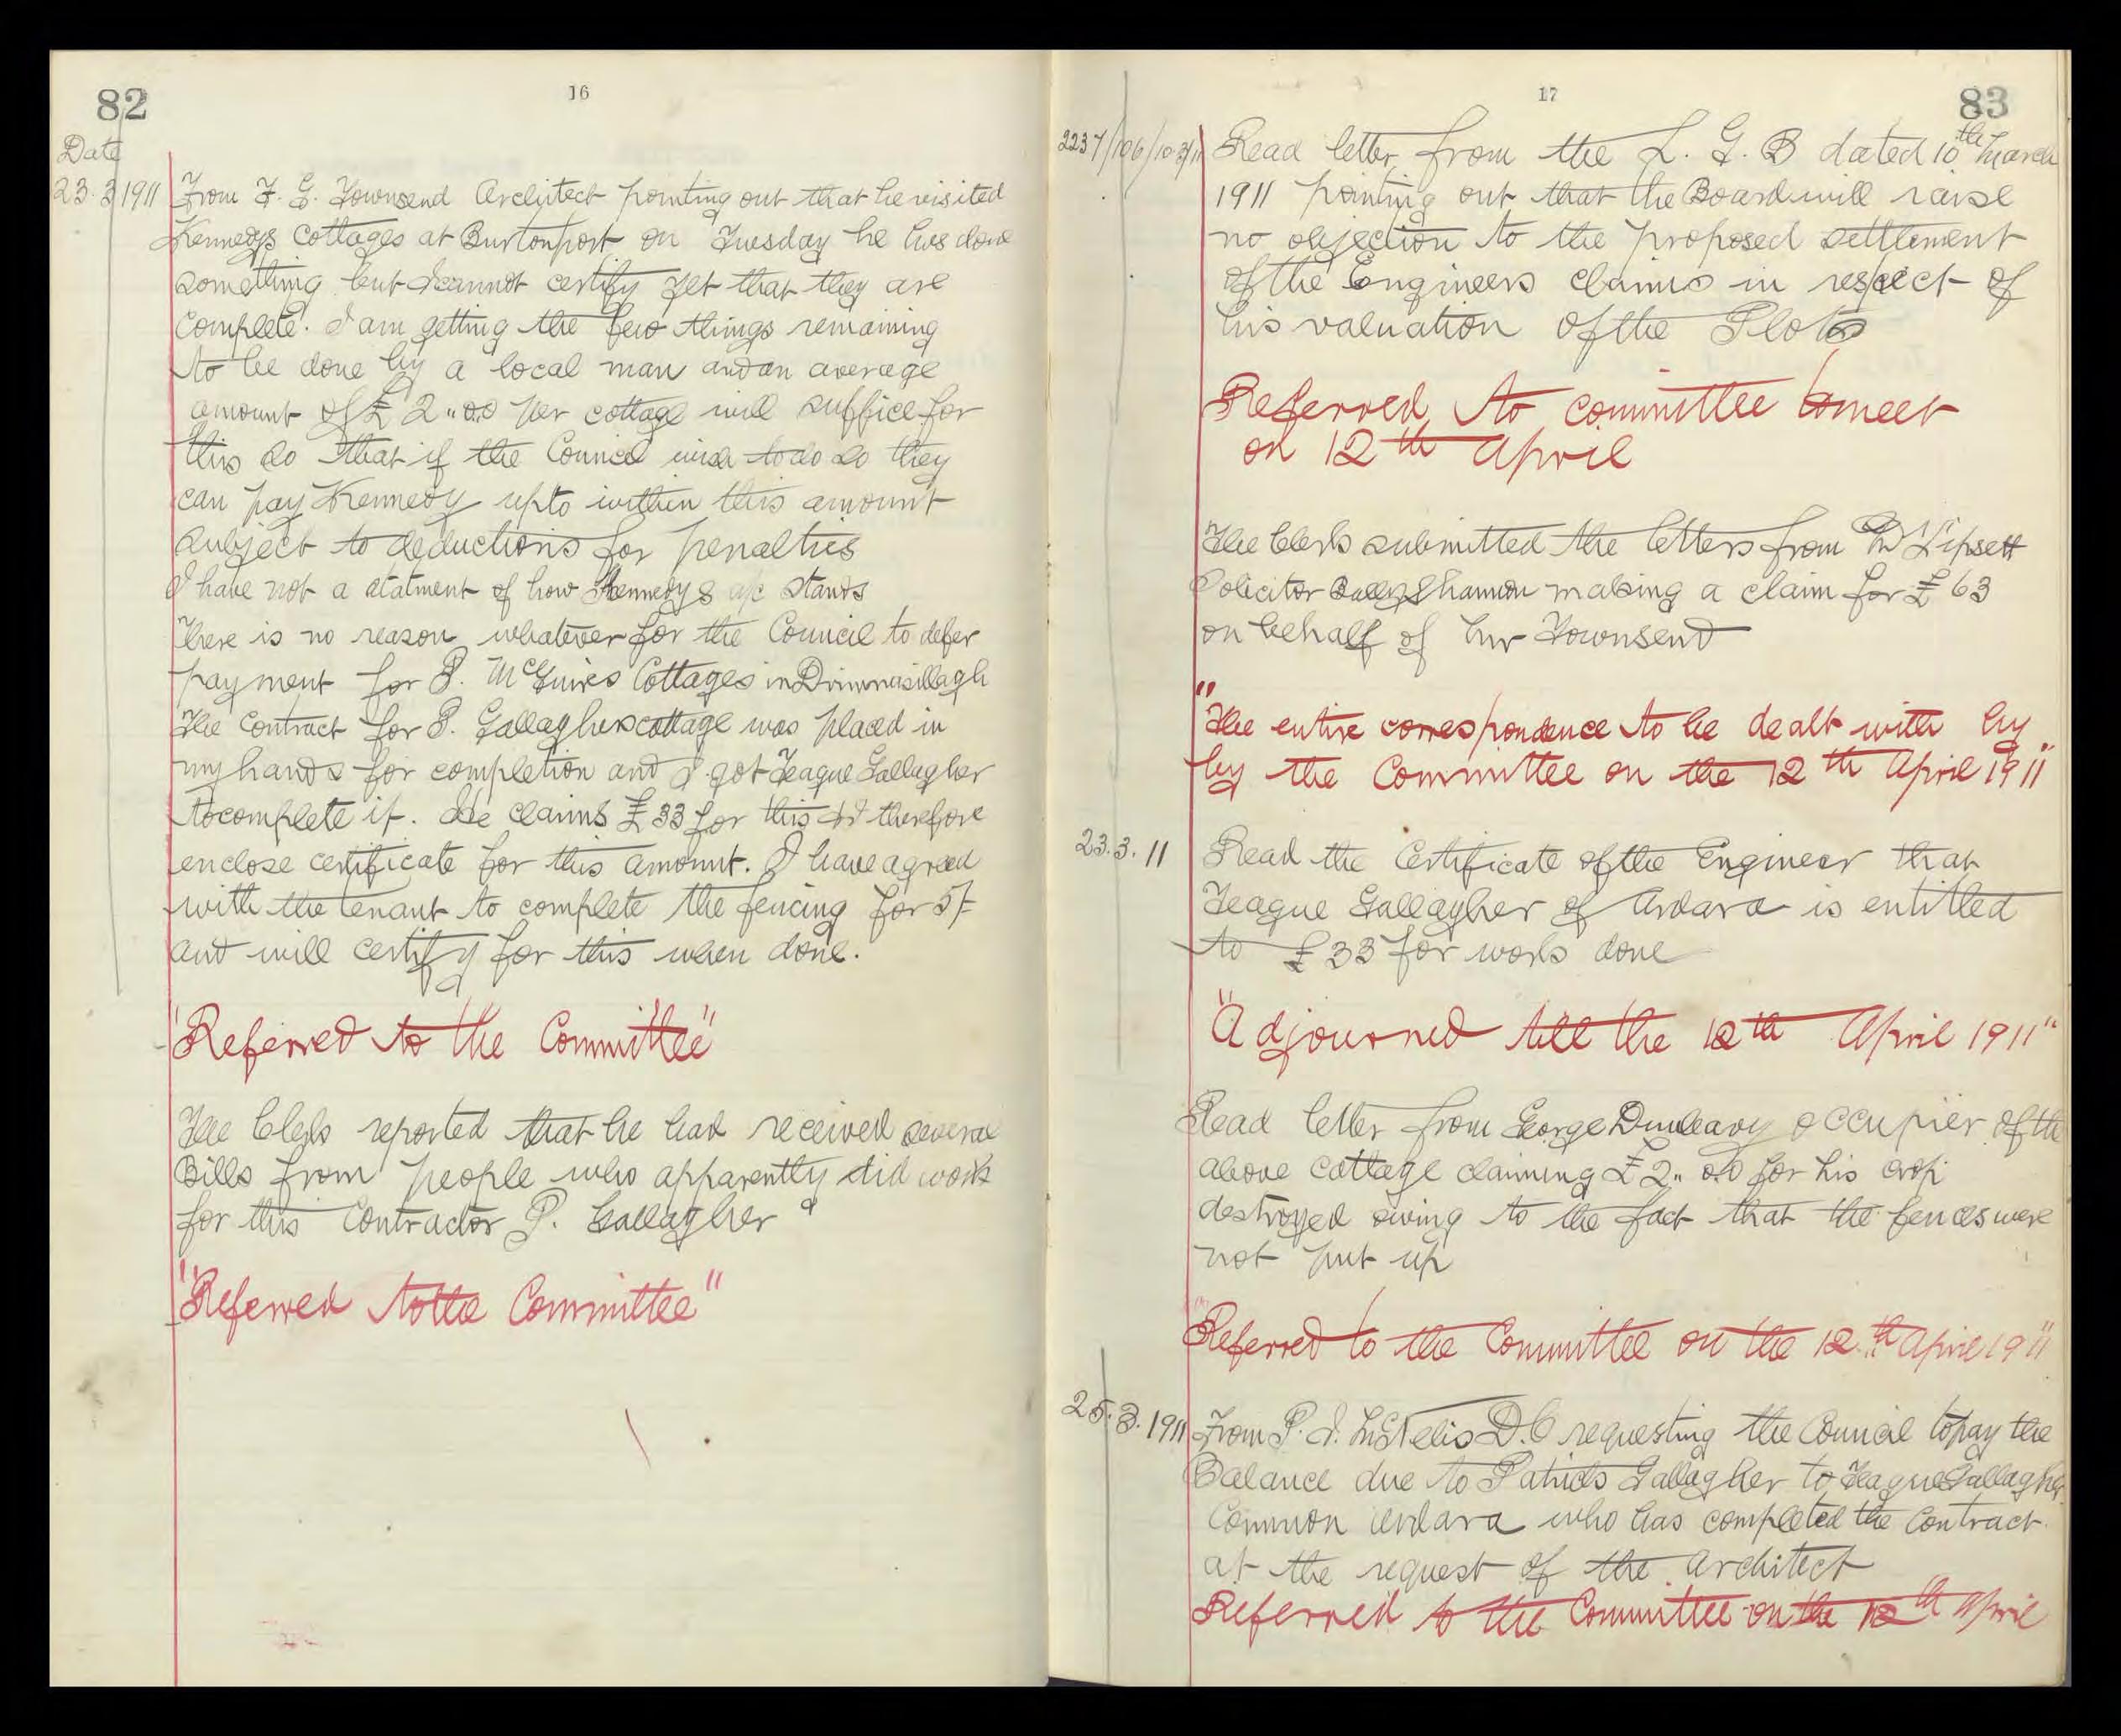 82
16
Date
23.3.1911 From F. G. Townsend Architect pointing out that he visited
Kennedys Cottages at Burtonport on Tuesday he has done
something but I cannot certify yet that they are
complete. I am getting the few things remaining
to be done by a local man and an average
amount of £2"0.0 per cottage will suffice for
this so that if the Council wish to do so they
can pay Kennedy up to within this amount
subject to deductions for penalties
I have not a statment of how Kennedys a/c stands
There is no reason whatever for the Council to defer
payment for P. McGuires Cottages in Drumnasillagh
The Contract for P. Gallaghers cottage was placed in
my hands for completion and I got Teague Gallagher
to complete it. He claims £33 for this & I therefore
enclose certificate for this amount. I have agreed
with the tenant to complete the fencing for 5/-
and will certify for this when done.
"Referred to the Committee"
The Clerk reported that he had received several
Bills from people who apparently did work
for this Contractor P. Gallagher
"Referred to the Committee"
17
83
2237/106/10.3/11 Read letter from the L. G. B dated 10th March
1911 pointing out that the Board will raise
no objection to the proposed settlement
of the Engineers claims in respect of
his valuation of the Plots
Referred to committee to meet
on 12th April
The Clerk submitted the letters from Mr Lipsett
Solicitor Ballyshannon making a claim for £63
on behalf of Mr Townsend
"The entire correspondence to be dealt with by
by the Committee on the 12th April 1911"
23.3.11 Read the Certificate of the Engineer that
Teague Gallagher of Ardara is entitled
to £33 for work done
"Adjourned till the 12th April 1911"
Read letter from George Dunleavy occupier of the
above cottage claiming £2"0.0 for his crop
destroyed owing to the fact that the fences were
not put up
"Referred to the Committee on the 12th April 1911"
25.3.1911 From P. J. McNelis D.C requesting the Council to pay the
Balance due to Patrick Gallagher to Teague Gallagher
Common Ardara who has completed the Contract
at the request of the Architect
Referred to the Committee on the 12th April